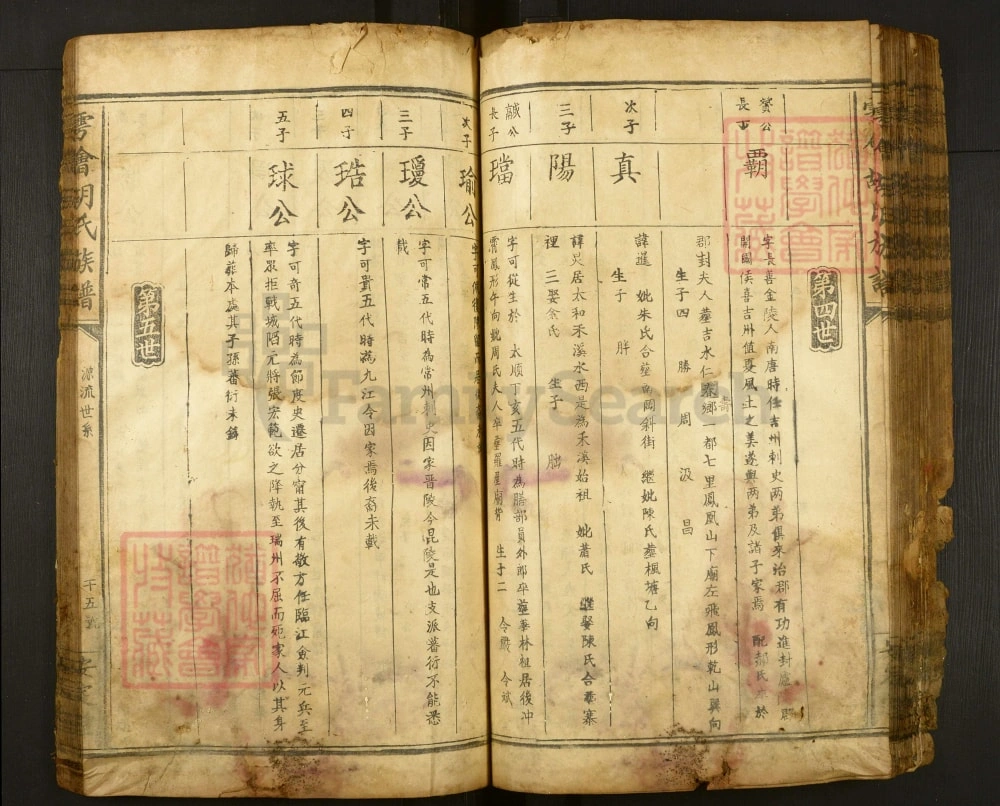 第四世
贇公
長子
覇
字長善金陵人南唐時任吉州刺史两弟俱来治郡有功進封廬
開國侯喜吉州值夏風土之美遂與两弟及諸子家焉 配郝氏
郡封夫人塟吉水仁壽鄉一都七里鳳凰山下廟左飛鳳形乾山巽向
生子四 勝 周 汲 昌
次子
真
諱暹 妣朱氏合塟南岡斜街 継妣陳氏塟楓塘乙向
生子 胖
三子
陽
諱炅居太和禾溪水西是為禾溪始祖 妣蕭氏 継娶陳氏合塟寨
裡 三娶余氏 生子 朏
誠公
長子
璫
字可從生於 太順丁亥五代時為膳部員外郎卒塟華林祖居後冲
霄鳳形午向妣周氏夫人卒塟羅屋廟背 生子二 令嚴 令斌
次子
瑜公
三子
瓊公
字可常五代時為常州刺史因家晋陵今昆陵是也支派蕃衍不能悉
載
四子
琣公
字可貴五代時為九江令因家焉後裔未載
五子
球公
字可奇五代時為節度史遷居分甯其後有敬方任臨江僉判元兵至
率眾拒戰城陷元將張宏範欲之降執至瑞州不屈而死家人以其身
歸葬本處其子孫蕃衍未錄
第五世
雩繪胡氏族譜
源流世系
安定
FamilySearch